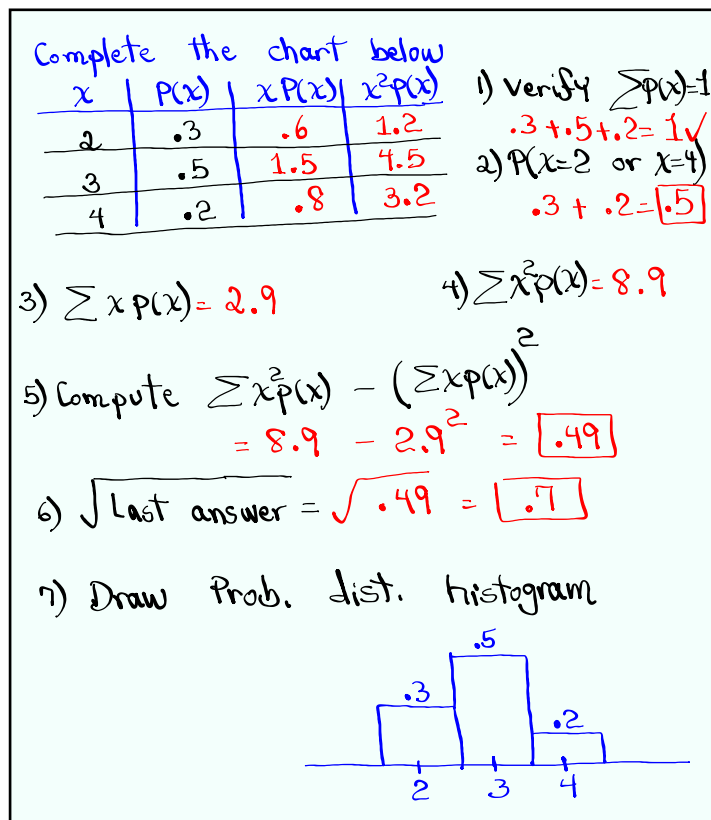 Complete the chart below
x P(x) x P(x) x²p(x)
2 .3 .6 1.2
3 .5 1.5 4.5
4 .2 .8 3.2
1) Verify ∑p(x)=1
.3 + .5 + .2 = 1 ✓
2) P(x=2 or x=4)
.3 + .2 = .5
3) ∑ x p(x) = 2.9
4) ∑x²p(x) = 8.9
5) Compute ∑x²p(x) - (∑xp(x))²
= 8.9 - 2.9² = .49
6) √Last answer = √.49 = .7
7) Draw Prob. dist. histogram
.5
.3
.2
2 3 4